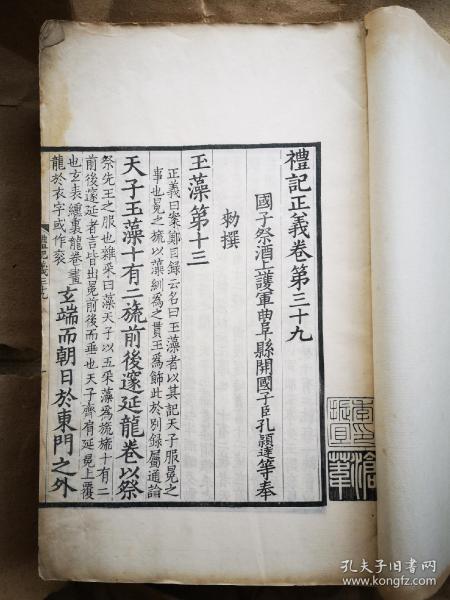 禮記正義卷第三十九
國子祭酒上護軍曲阜縣開國子臣孔穎達等奉
勑撰
玉藻第十三
正義曰案鄭目録云名曰玉藻者以其記天子服冕之
事也冕之旒以藻紃為之貫玉為飾此於別録屬通論
天子玉藻十有二旒前後邃延龍卷以祭
祭先王之服也雜采曰藻天子以五采藻為旒旒十有二
前後邃延者言皆出冕前後而垂也天子齊肩延冕上覆
也玄表纁裏龍卷畫
龍於衣字或作衮
玄端而朝日於東門之外
孔夫子旧书网
www.kongfz.com